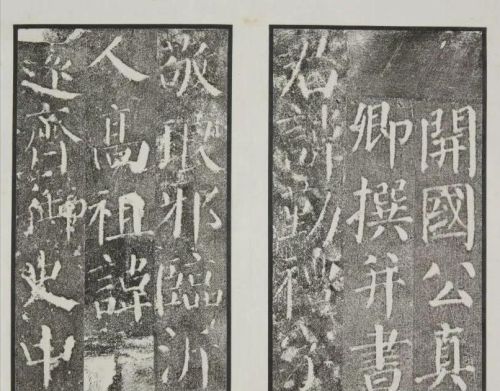 開國公真
卿撰并書
君諱勤禮字
敬琅邪臨沂
人高祖諱
逐齊御史中